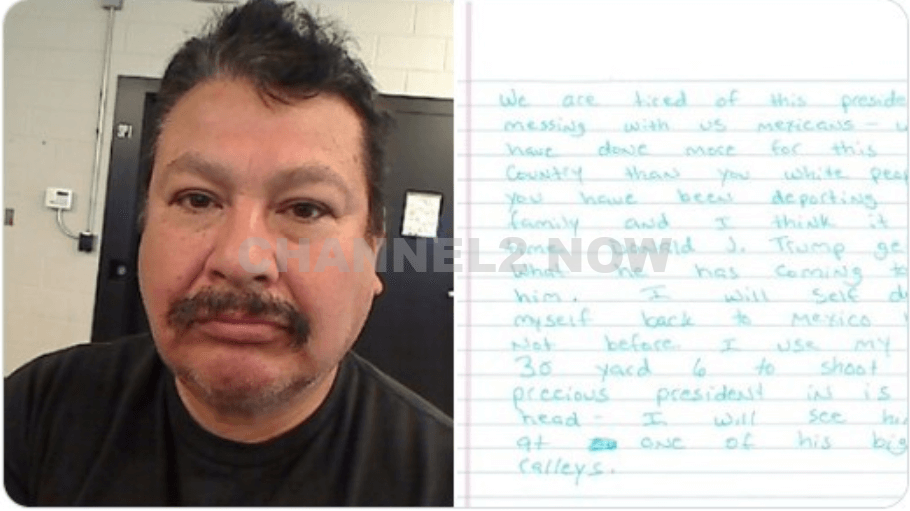 SP1
CHANNEL2 NOW
We are tired of this preside
messing with us mexicans - w
have done more for this
Country than you white peop
you have been deporting
family and I think it
Donald J. Trump ge
what he has coming to
him. I will self de
myself back to mexico
Not before I use my
30 yard 6 to shoot
precious president in is
head - I will see hi
at one of his big
ralleys.